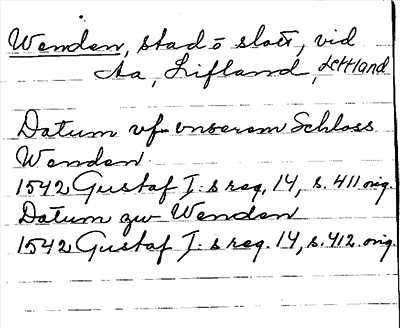 Wenden, stad o slott, vid
Aa, Lifland, Lettland
Datum vf vnserem Schloss
Wenden
1542 Gustaf I:s reg. 14, s. 411 orig.
Datum zw Wenden
1542 Gustaf I:s reg. 14, s. 412 orig.